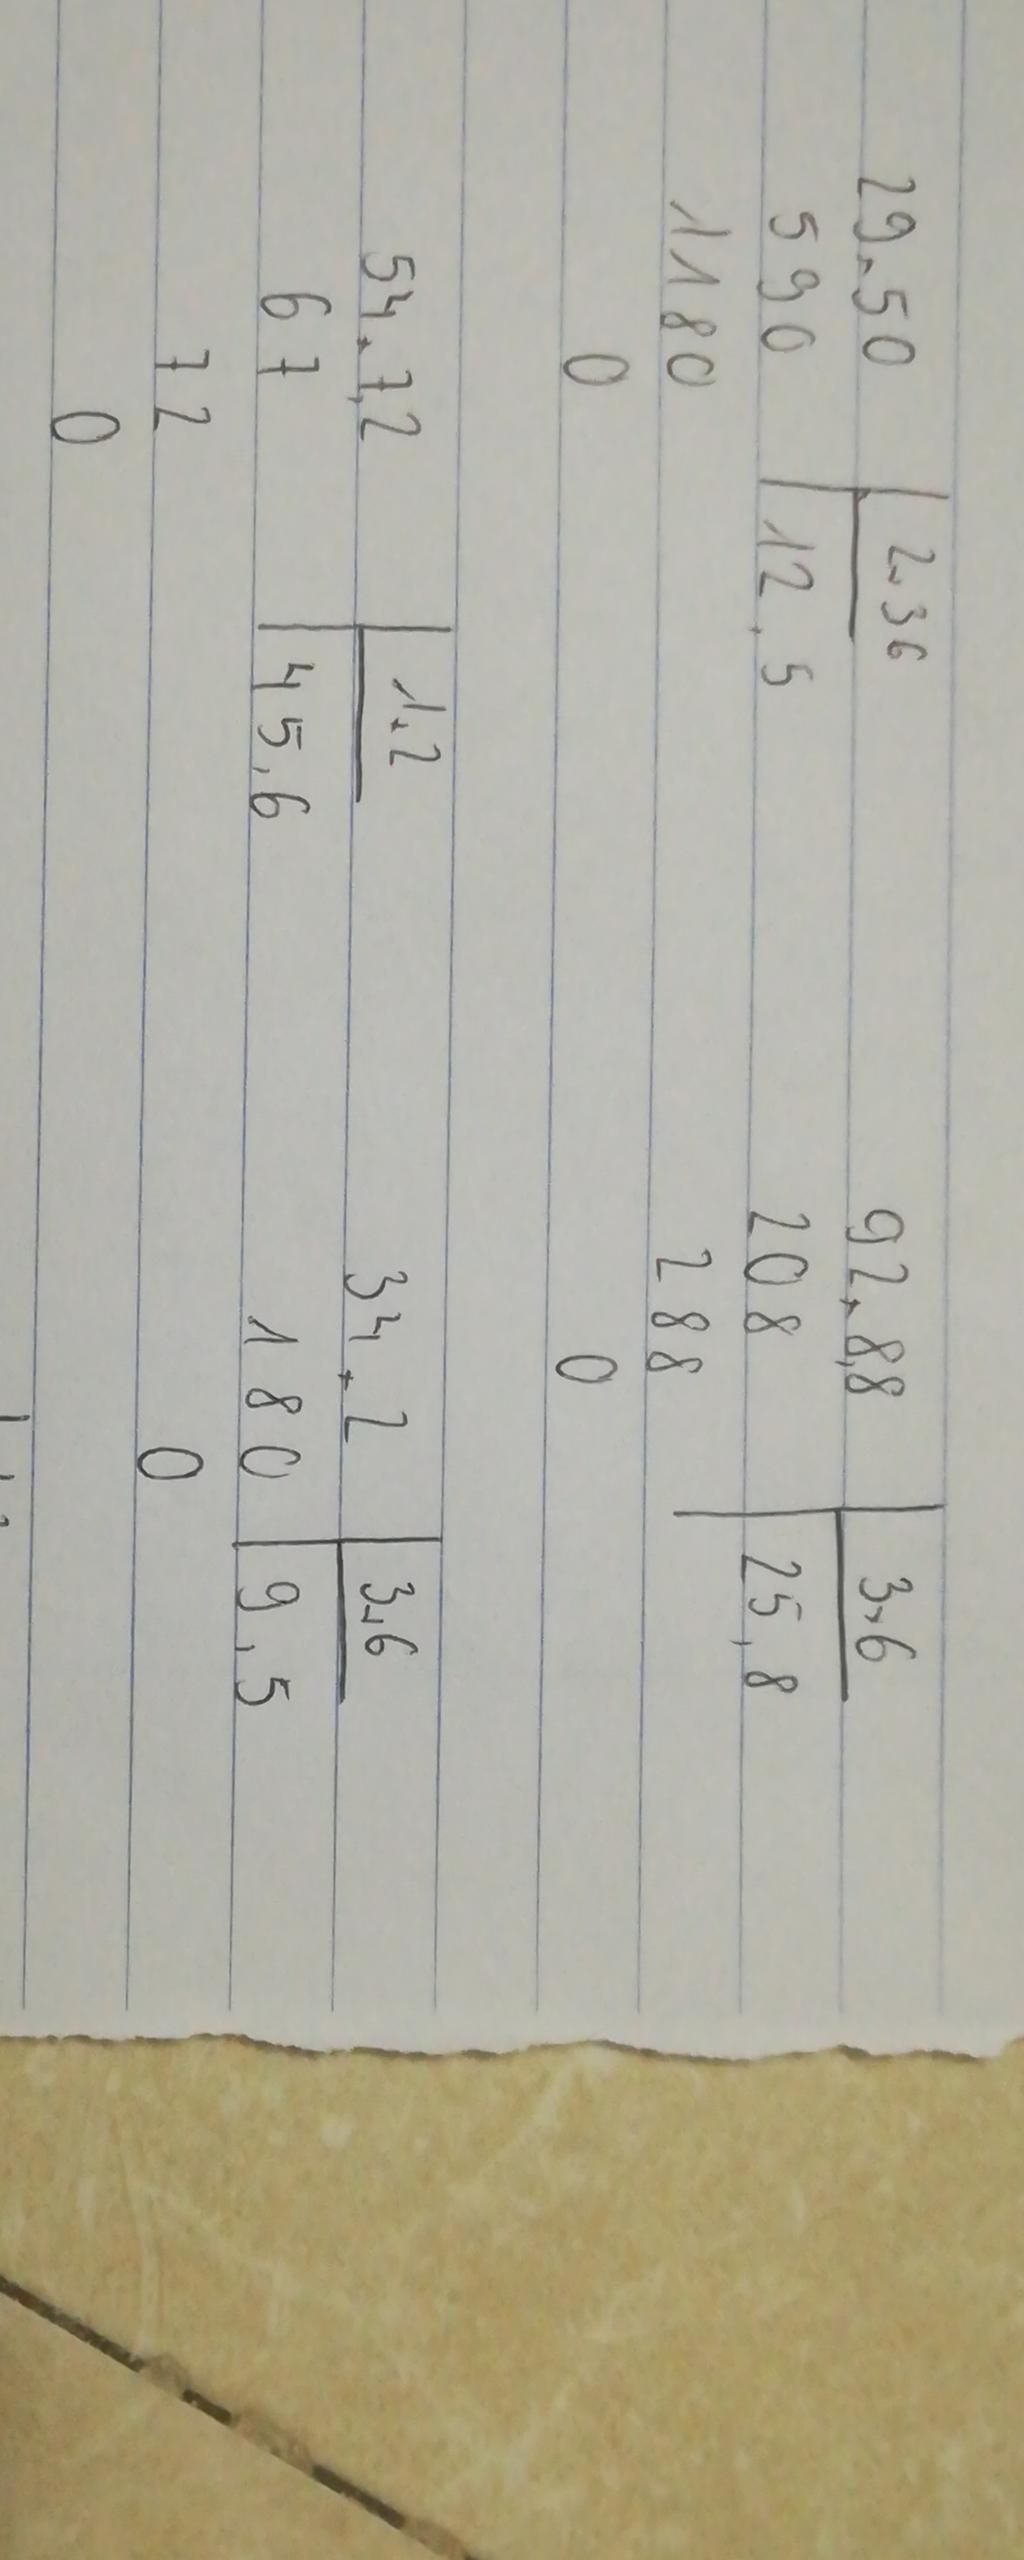 29.50 | 2.36
590 | 12,5
1180
0
92.8,8 | 3.6
208 | 25,8
288
0
54.7,2 | 1.2
67 | 45,6
72
0
34.2 | 3.6
180 | 9,5
0